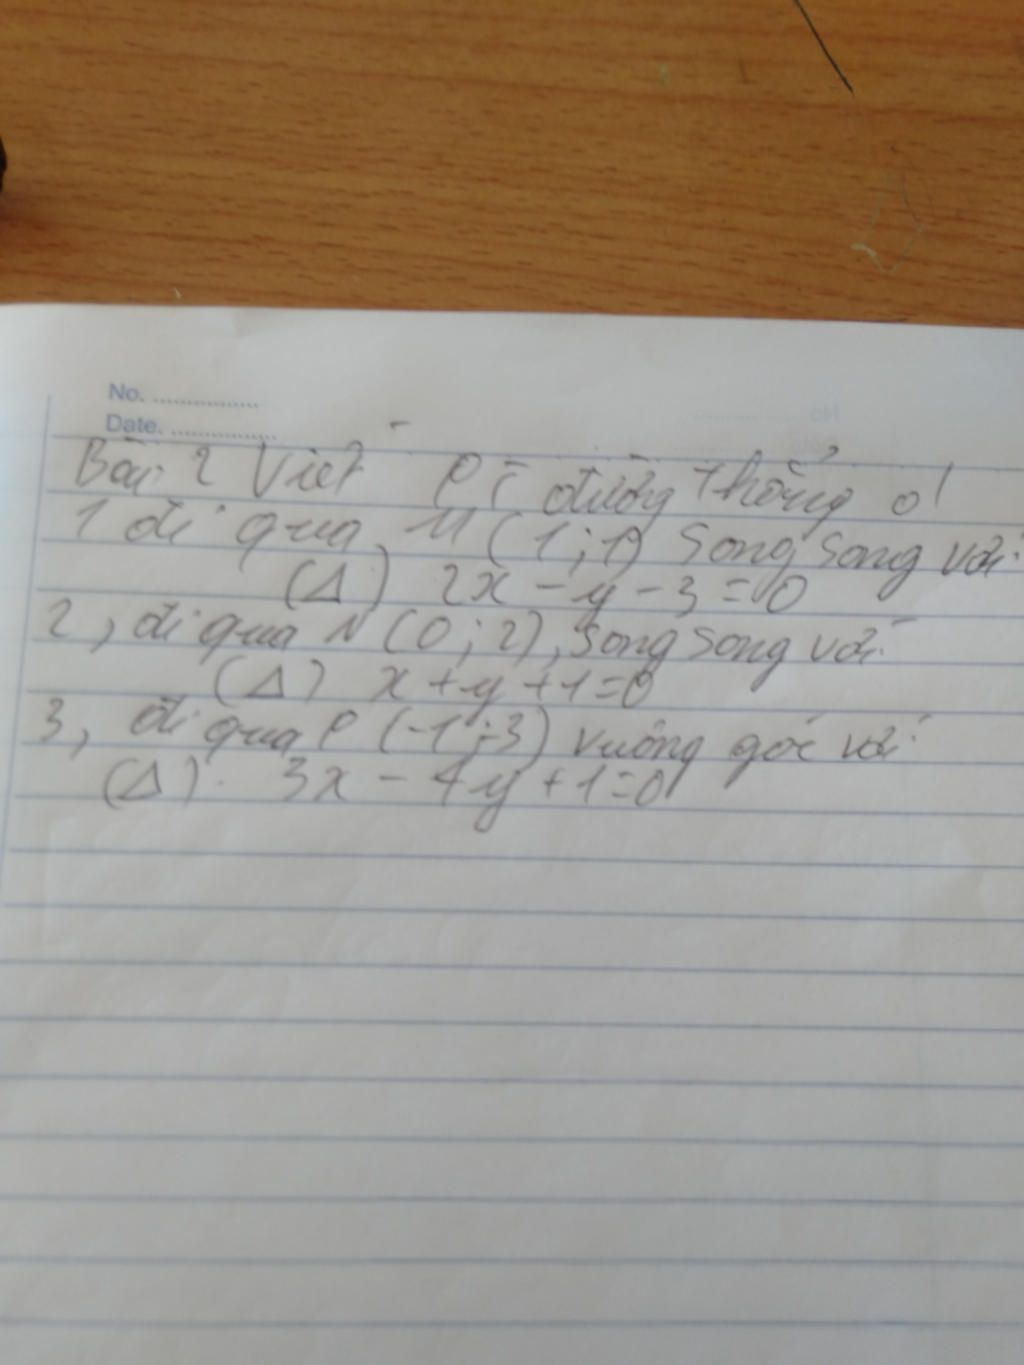 No. ...............
Date. ...............
Bài 2 Viết PT đường thẳng d
1 đi qua M (1;1) song song với
(Δ) 2x - y - 3 = 0
2, đi qua N (0;2), song song với
(Δ) x + y + 1 = 0
3, đi qua P (-1;3) vuông góc với
(Δ). 3x - 4y + 1 = 0